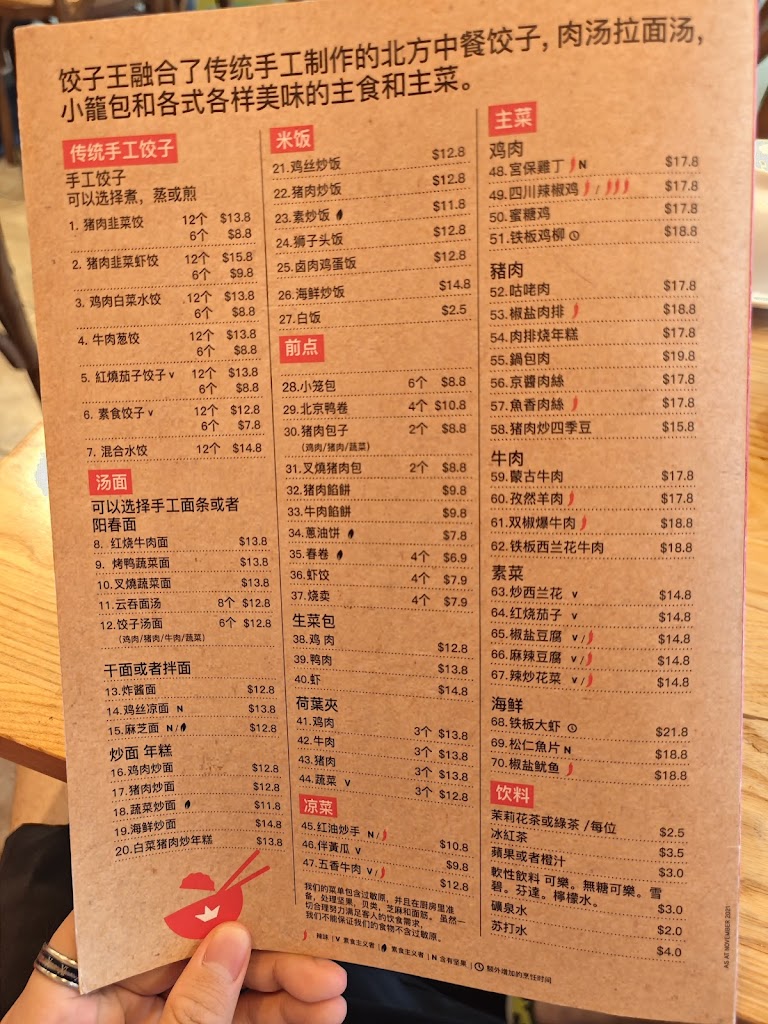 饺子王融合了传统手工制作的北方中餐饺子, 肉汤拉面汤,
小籠包和各式各样美味的主食和主菜。
传统手工饺子
手工饺子
可以选择煮，蒸或煎
1. 猪肉韭菜饺 12个 $13.8
6个 $8.8
2. 猪肉韭菜虾饺 12个 $15.8
6个 $9.8
3. 鸡肉白菜水饺 12个 $13.8
6个 $8.8
4. 牛肉葱饺 12个 $13.8
6个 $8.8
5. 紅燒茄子饺子 v 12个 $13.8
6个 $8.8
6. 素食饺子 v 12个 $12.8
6个 $7.8
7. 混合水饺 12个 $14.8
汤面
可以选择手工面条或者
阳春面
8. 红烧牛肉面 $13.8
9. 烤鸭蔬菜面 $13.8
10.叉燒蔬菜面 $13.8
11.云吞面汤 8个 $12.8
12.饺子汤面 6个 $12.8
(鸡肉/猪肉/牛肉/蔬菜)
干面或者拌面
13.炸酱面 $12.8
14.鸡丝凉面 N $13.8
15.麻芝面 N/ $12.8
炒面 年糕
16.鸡肉炒面 $12.8
17.猪肉炒面 $12.8
18.蔬菜炒面 $11.8
19.海鲜炒面 $14.8
20.白菜猪肉炒年糕 $13.8
米饭
21.鸡丝炒饭 $12.8
22.猪肉炒饭 $12.8
23.素炒饭 $11.8
24.狮子头饭 $12.8
25.卤肉鸡蛋饭 $12.8
26.海鲜炒饭 $14.8
27.白饭 $2.5
前点
28.小笼包 6个 $8.8
29.北京鸭卷 4个 $10.8
30.猪肉包子 2个 $8.8
(鸡肉/猪肉/蔬菜)
31.叉燒猪肉包 2个 $8.8
32.猪肉餡餅 $9.8
33.牛肉餡餅 $9.8
34.蔥油饼 $7.8
35.春卷 4个 $6.9
36.虾饺 4个 $7.9
37.烧卖 4个 $7.9
生菜包
38.鸡 肉 $12.8
39.鸭肉 $13.8
40.虾 $14.8
荷葉夾
41.鸡肉 3个 $13.8
42.牛肉 3个 $13.8
43.猪肉 3个 $13.8
44.蔬菜 V 3个 $12.8
凉菜
45.红油炒手 N/ $10.8
46.伴黃瓜 V $9.8
47.五香牛肉 V/ $12.8
我们的菜单包含过敏原，并且在厨房里准
备，处理坚果，贝类，芝麻和面筋。虽然一
切合理努力满足客人的饮食需求，
我们不能保证我们的食物不含过敏原。
辣味 | V 素食主义者 | 素食主义者 | N 含有坚果 | 额外增加的烹饪时间
主菜
鸡肉
48.宮保雞丁 N $17.8
49.四川辣椒鸡 / $17.8
50.蜜糖鸡 $17.8
51.铁板鸡柳 $18.8
豬肉
52.咕咾肉 $17.8
53.椒盐肉排 $18.8
54.肉排烧年糕 $17.8
55.鍋包肉 $19.8
56.京醬肉絲 $17.8
57.魚香肉絲 $17.8
58.猪肉炒四季豆 $15.8
牛肉
59.蒙古牛肉 $17.8
60.孜然羊肉 $17.8
61.双椒爆牛肉 $18.8
62.铁板西兰花牛肉 $18.8
素菜
63.炒西兰花 v $14.8
64.红烧茄子 v $14.8
65.椒盐豆腐 v/ $14.8
66.麻辣豆腐 v/ $14.8
67.辣炒花菜 v/ $14.8
海鲜
68.铁板大虾 $21.8
69.松仁魚片 N $18.8
70.椒盐鱿鱼 $18.8
饮料
茉莉花茶或綠茶 /每位 $2.5
冰紅茶 $3.5
蘋果或者橙汁 $3.0
軟性飲料 可樂。無糖可樂。雪
碧。芬達。檸檬水。 $3.0
礦泉水 $2.0
苏打水 $4.0
AS AT NOVEMBER 2021